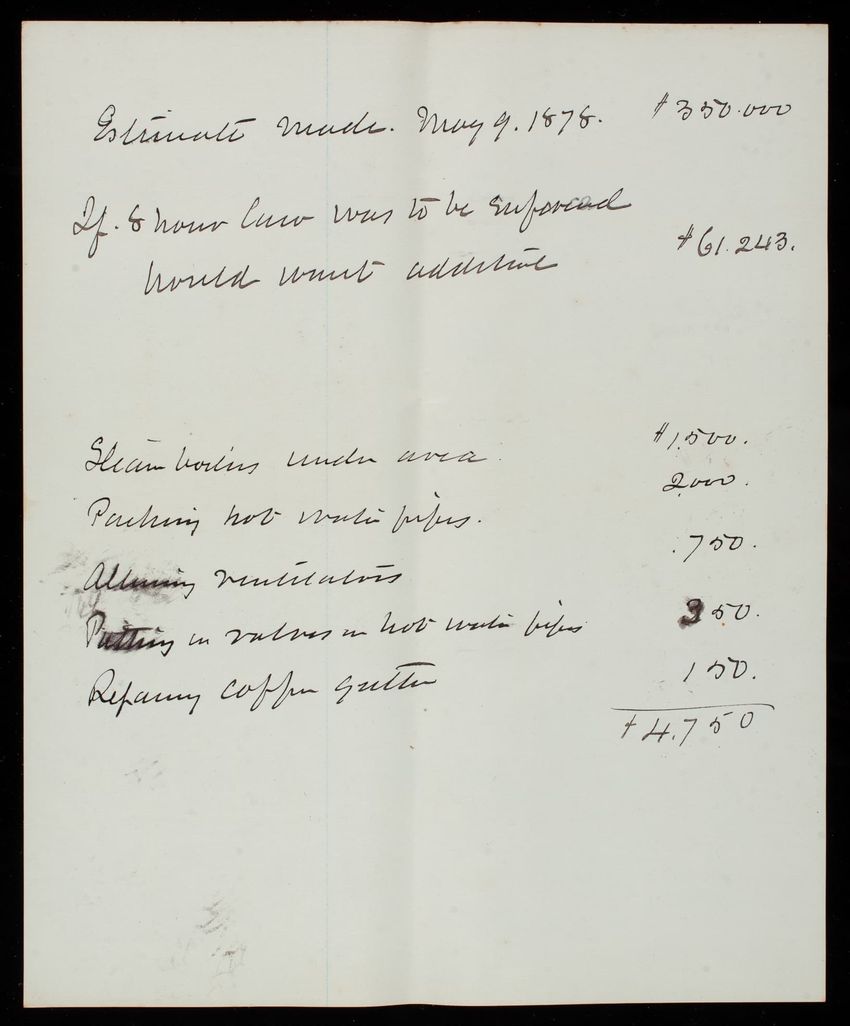 Estimate made. May 9. 1878. $350.000
If. 8 hour law was to be enforced
would want additional $61.243.
Steam boilers under area $1,500.
Packing hot water pipes. 2,000.
Altering ventilators .750.
Putting in valves in hot water pipes 350.
Repairing copper gutter 150.
$4.750